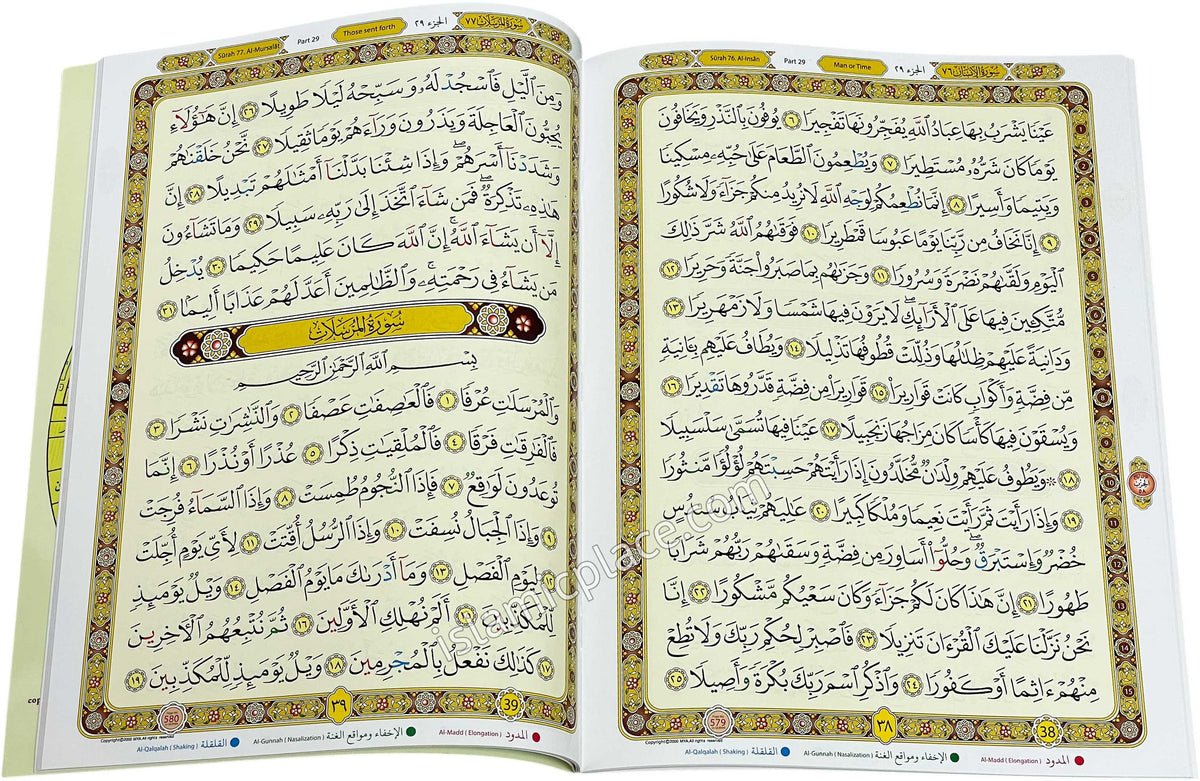 سُورَةُ الإِنسَان ٧٦
الجزء ٢٩
Man or Time
Part 29
Sûrah 76. Al-Insân
عَيْنًا يَشْرَبُ بِهَا عِبَادُ ٱللَّهِ يُفَجِّرُونَهَا تَفْجِيرًا ٦ يُوفُونَ بِٱلنَّذْرِ وَيَخَافُونَ
يَوْمًا كَانَ شَرُّهُۥ مُسْتَطِيرًا ٧ وَيُطْعِمُونَ ٱلطَّعَامَ عَلَىٰ حُبِّهِۦ مِسْكِينًا
وَيَتِيمًا وَأَسِيرًا ٨ إِنَّمَا نُطْعِمُكُمْ لِوَجْهِ ٱللَّهِ لَا نُرِيدُ مِنكُمْ جَزَآءً وَلَا شُكُورًا
٩ إِنَّا نَخَافُ مِن رَّبِّنَا يَوْمًا عَبُوسًا قَمْطَرِيرًا ١٠ فَوَقَىٰهُمُ ٱللَّهُ شَرَّ ذَٰلِكَ
ٱلْيَوْمِ وَلَقَّىٰهُمْ نَضْرَةً وَسُرُورًا ١١ وَجَزَىٰهُم بِمَا صَبَرُوا۟ جَنَّةً وَحَرِيرًا ١٢
مُّتَّكِـِٔينَ فِيهَا عَلَى ٱلْأَرَآئِكِ ۖ لَا يَرَوْنَ فِيهَا شَمْسًا وَلَا زَمْهَرِيرًا ١٣
وَدَانِيَةً عَلَيْهِمْ ظِلَٰلُهَا وَذُلِّلَتْ قُطُوفُهَا تَذْلِيلًا ١٤ وَيُطَافُ عَلَيْهِم بِـَٔانِيَةٍ
مِّن فِضَّةٍ وَأَكْوَابٍ كَانَتْ قَوَارِيرَا۠ ١٥ قَوَارِيرَا۟ مِن فِضَّةٍ قَدَّرُوهَا تَقْدِيرًا ١٦
وَيُسْقَوْنَ فِيهَا كَأْسًا كَانَ مِزَاجُهَا زَنجَبِيلًا ١٧ عَيْنًا فِيهَا تُسَمَّىٰ سَلْسَبِيلًا
١٨ ۞ وَيَطُوفُ عَلَيْهِمْ وِلْدَٰنٌ مُّخَلَّدُونَ إِذَا رَأَيْتَهُمْ حَسِبْتَهُمْ لُؤْلُؤًا مَّنثُورًا
١٩ وَإِذَا رَأَيْتَ ثَمَّ رَأَيْتَ نَعِيمًا وَمُلْكًا كَبِيرًا ٢٠ عَٰلِيَهُمْ ثِيَابُ سُندُسٍ
خُضْرٌ وَإِسْتَبْرَقٌ ۖ وَحُلُّوٓا۟ أَسَاوِرَ مِن فِضَّةٍ وَسَقَىٰهُمْ رَبُّهُمْ شَرَابًا
طَهُورًا ٢١ إِنَّ هَٰذَا كَانَ لَكُمْ جَزَآءً وَكَانَ سَعْيُكُم مَّشْكُورًا ٢٢ إِنَّا
نَحْنُ نَزَّلْنَا عَلَيْكَ ٱلْقُرْءَانَ تَنزِيلًا ٢٣ فَٱصْبِرْ لِحُكْمِ رَبِّكَ وَلَا تُطِعْ
مِنْهُمْ ءَاثِمًا أَوْ كَفُورًا ٢٤ وَٱذْكُرِ ٱسْمَ رَبِّكَ بُكْرَةً وَأَصِيلًا ٢٥
38
٣٨
579
المدود Al-Madd (Elongation)
الإخفاء ومواقع الغنة Al-Gunnah (Nasalization)
القلقلة Al-Qalqalah (Shaking)
سُورَةُ المُرْسَلَات ٧٧
الجزء ٢٩
Those sent forth
Part 29
Sûrah 77. Al-Mursalât
وَمِنَ ٱلَّيْلِ فَٱسْجُدْ لَهُۥ وَسَبِّحْهُ لَيْلًا طَوِيلًا ٢٦ إِنَّ هَٰٓؤُلَآءِ
يُحِبُّونَ ٱلْعَاجِلَةَ وَيَذَرُونَ وَرَآءَهُمْ يَوْمًا ثَقِيلًا ٢٧ نَّحْنُ خَلَقْنَٰهُمْ
وَشَدَدْنَآ أَسْرَهُمْ ۖ وَإِذَا شِئْنَا بَدَّلْنَآ أَمْثَٰلَهُمْ تَبْدِيلًا ٢٨ إِنَّ
هَٰذِهِۦ تَذْكِرَةٌ ۖ فَمَن شَآءَ ٱتَّخَذَ إِلَىٰ رَبِّهِۦ سَبِيلًا ٢٩ وَمَا تَشَآءُونَ
إِلَّآ أَن يَشَآءَ ٱللَّهُ ۚ إِنَّ ٱللَّهَ كَانَ عَلِيمًا حَكِيمًا ٣٠ يُدْخِلُ
مَن يَشَآءُ فِى رَحْمَتِهِۦ ۚ وَٱلظَّٰلِمِينَ أَعَدَّ لَهُمْ عَذَابًا أَلِيمًۢا ٣١
سُورَةُ المُرْسَلَات
بِسْمِ ٱللَّهِ ٱلرَّحْمَٰنِ ٱلرَّحِيمِ
وَٱلْمُرْسَلَٰتِ عُرْفًا ١ فَٱلْعَٰصِفَٰتِ عَصْفًا ٢ وَٱلنَّٰشِرَٰتِ نَشْرًا ٣
فَٱلْفَٰرِقَٰتِ فَرْقًا ٤ فَٱلْمُلْقِيَٰتِ ذِكْرًا ٥ عُذْرًا أَوْ نُذْرًا ٦ إِنَّمَا
تُوعَدُونَ لَوَٰقِعٌ ٧ فَإِذَا ٱلنُّجُومُ طُمِسَتْ ٨ وَإِذَا ٱلسَّمَآءُ فُرِجَتْ
٩ وَإِذَا ٱلْجِبَالُ نُسِفَتْ ١٠ وَإِذَا ٱلرُّسُلُ أُقِّتَتْ ١١ لِأَىِّ يَوْمٍ أُجِّلَتْ
١٢ لِيَوْمِ ٱلْفَصْلِ ١٣ وَمَآ أَدْرَىٰكَ مَا يَوْمُ ٱلْفَصْلِ ١٤ وَيْلٌ يَوْمَئِذٍ
لِّلْمُكَذِّبِينَ ١٥ أَلَمْ نُهْلِكِ ٱلْأَوَّلِينَ ١٦ ثُمَّ نُتْبِعُهُمُ ٱلْءَاخِرِينَ
١٧ كَذَٰلِكَ نَفْعَلُ بِٱلْمُجْرِمِينَ ١٨ وَيْلٌ يَوْمَئِذٍ لِّلْمُكَذِّبِينَ ١٩
39
٣٩
580
المدود Al-Madd (Elongation)
الإخفاء ومواقع الغنة Al-Gunnah (Nasalization)
القلقلة Al-Qalqalah (Shaking)
islamicplace.com